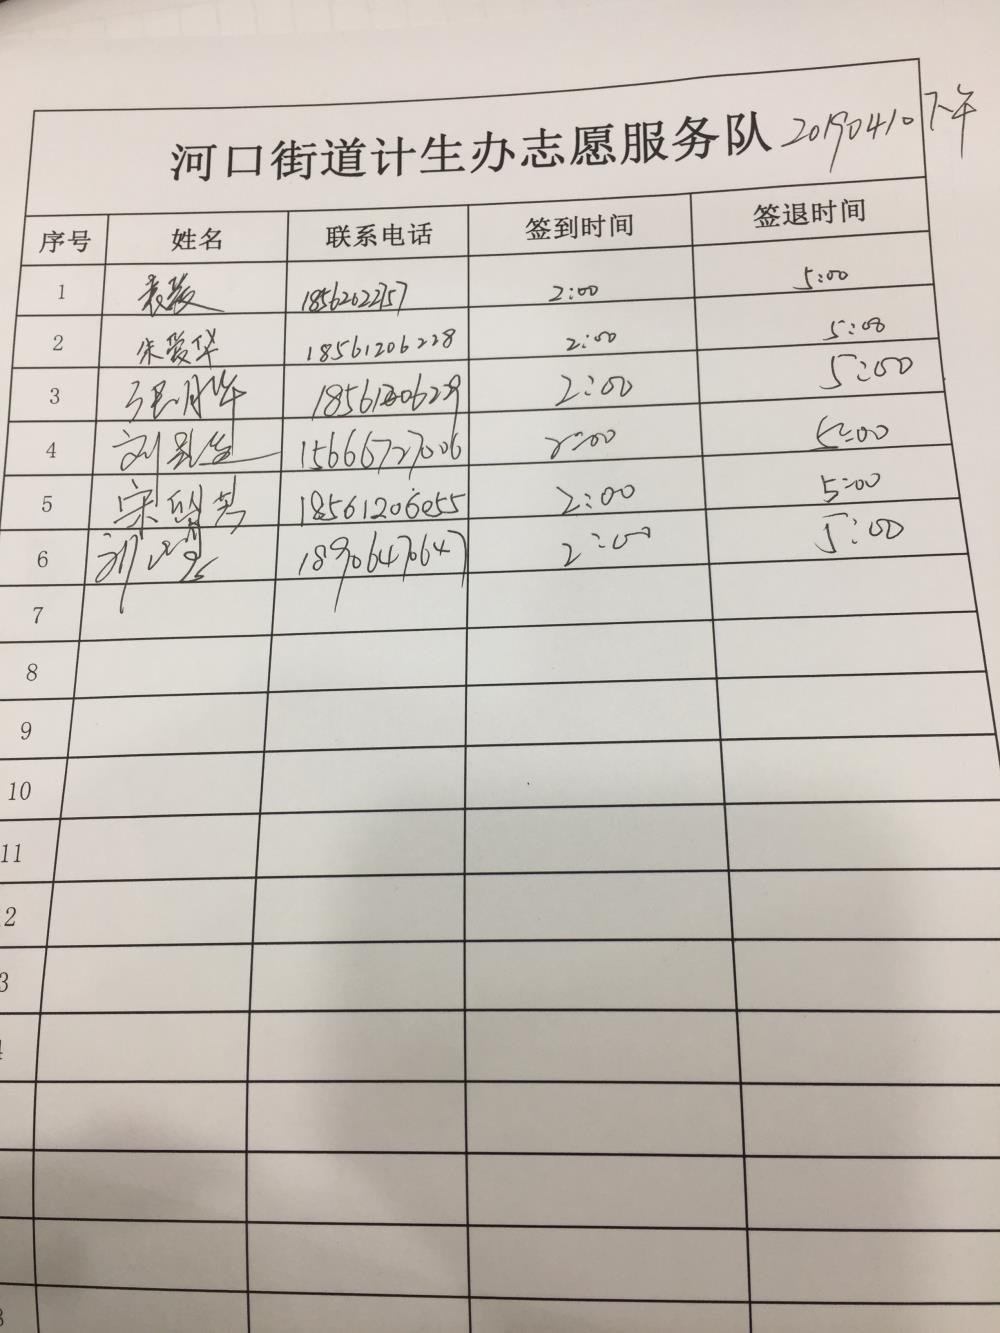 河口街道计生办志愿服务队 20190410下午
序号 姓名 联系电话 签到时间 签退时间
1 18562022757 2:00 5:00
2 朱爱华 18561206228 2:00 5:00
3 18561206229 2:00 5:00
4 15666727006 2:00 5:00
5 18561206055 2:00 5:00
6 18906470647 2:00 5:00
7
8
9
10
11